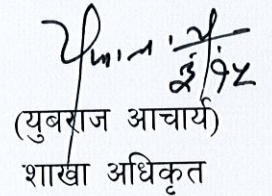 (युबराज आचार्य)
शाखा अधिकृत